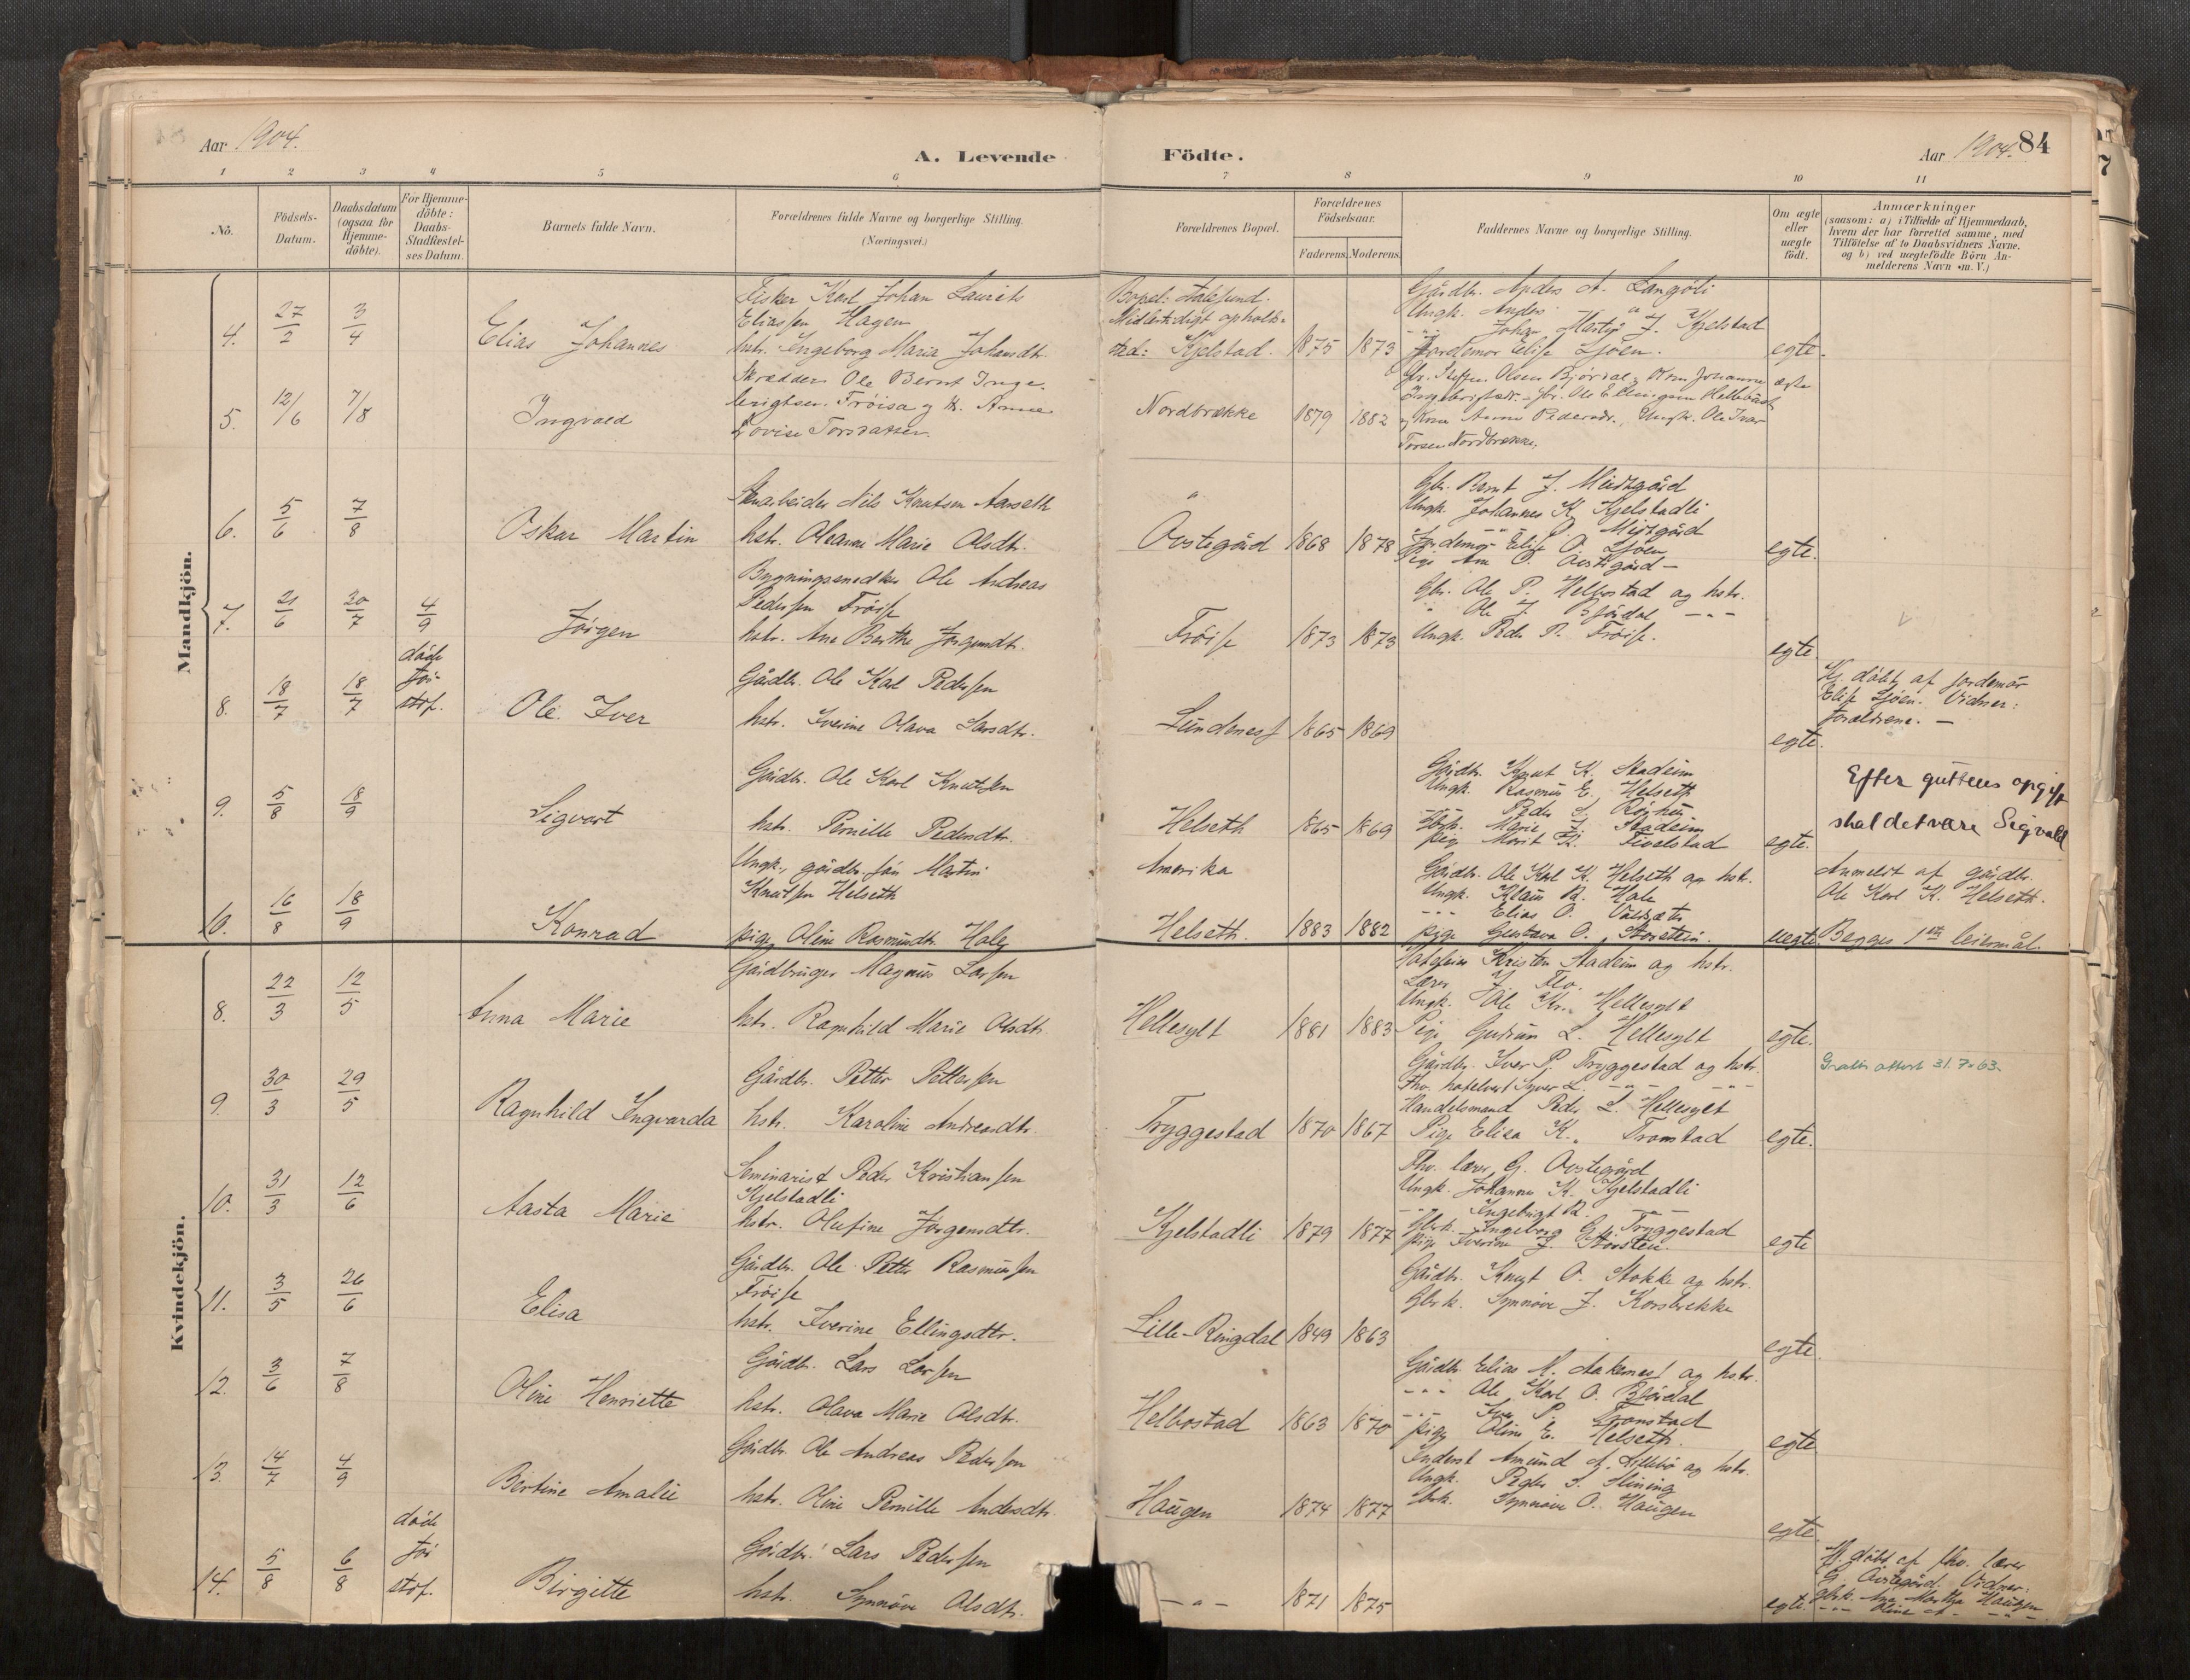 Aar 1904.
A. Levende
Födte.
Aar 1904. 84
1 2 3 4 5 6 7 8 9 10 11
No.
Födsels-Datum.
Daabsdatum (ogsaa for Hjemme-döbte).
For Hjemme-döbte: Daabs-Stadfæstel-ses Datum.
Barnets fulde Navn.
Forældrenes fulde Navne og borgerlige Stilling.
(Næringsvei.)
Forældrenes Bopæl.
Forældrenes Födselsaar.
Faderens. Moderens.
Faddernes Navne og borgerlige Stilling.
Om ægte eller uægte födt.
Anmærkninger
(saasom: a) i Tilfælde af Hjemmedaab,
hvem der har forrettet samme, med
Tilföielse af to Daabsvidners Navne.
og b) ved uægtefödte Börn An-
melderens Navn m. V.)
Mandkjön.
4. 27/2 3/4 Elias Johannes
Fisker Karl Johan Laurits
Eliassen Hagen
hstr. Ingeborg Maria Johansdtr.
Bopæl: Aalesund.
Midlertidigt opholds-
sted: Kjelstad. 1875 1873
Gårdbr. Anders A. Langoli
Ungk. Anders - " -
- " - Johan Martin J. Kjelstad
Jordemor Elise Ljöen.
egte.
5. 12/6 7/8 Ingvald
Skrædder Ole Bernt Inge-
brigtsen Fröisa og H. Anne
Lovise Torsdatter.
Nordbrække 1879 1882
Gbr. Steffen Olsen Björdal, Kone Johanne
Ingebrigtsdr. Gbr. Ole Ellingsen Hellebost
og Kone Anne Pedersdr., Ungk. Ole Ivar
Torsen Nordbrække.
ægte
6. 5/6 7/8 Oskar Martin
Stenarbeider Nils Knutsen Aarseth
hstr. Oleanne Marie Olsdtr.
"
Ovstegård 1868 1878
Gbr. Bernt J. Midtgård
Ungk. Johannes K. Kjelstadli
- " - O. Midtgård
Jordemor Elise O. Ljöen
Pige Ane O. Ovstegård -
egte.
7. 21/6 30/7 4/9 Jörgen
Bygningssnedker Ole Andreas
Pedersen Fröise
hstr. Ane Berthe Jörgensdtr.
Fröise 1873 1873
Gbr. Ole P. Helbostad og hstr.
" Ole J. Björdal - " -
Ungk. Peder P. Fröise.
egte
8. 18/7 18/7 döde för stdf. Ole Iver
Gårdbr. Ole Karl Pedersen
hstr. Iverine Olava Larsdtr.
Lundenes 1865 1869
egte.
Hj. döbt af jordemor
Elise Ljöen. Vidner:
Forældrene. -
9. 5/8 18/9 Sigvart
Gårdbr. Ole Karl Knutsen
hstr. Pernille Pedersdtr.
Helseth 1865 1869
Gårdbr. Knut K. Stadeim
Ungk. Rasmus E. Helseth
- " - Peder S. Röyhus
Gbrk. Marie J. Stadeim
Pige Marit K. Tivelstad
egte.
Efter guttens opgift
skal det være Sigvald
10. 16/8 18/9 Konrad
Ungk., gårdbr. sön Martin
Knutsen Helseth
pige Oline Rasmusdtr. Hole
Amerika
Helseth. 1883 1882
Gårdbr. Ole Karl K. Helseth og hstr.
Ungk. Klaus R. Hole
- " - Elias O.
pige Gustava O. Storstein.
uegte
Anmeldt af gårdbr.
Ole Karl K. Helseth.
Begges 1ste leiermål.
Kvindekjön.
8. 22/3 12/5 Anna Marie
Gårdbruger Magnus Larsen
hstr. Ragnhild Marie Olsdtr.
Hellesylt 1881 1883
Hoteleier Kristen Stadeim og hstr.
Lærer J. Flo.
Ungk. Ole Kr. Hellesylt
Pige Gudrun L. Hellesylt
egte.
9. 30/3 29/5 Ragnhild Ingvarda
Gårdbr. Petter Pettersen
hstr. Karoline Andreasdtr.
Tryggestad 1870 1867
Gårdbr. Iver P. Tryggestad og hstr.
Fhv. hotelvert Syver L. - " - - " -
Handelsmand Peder L. Hellesylt
Pige Elisa K. Tronstad
egte.
Gratis attest 31.7.63.
10. 31/3 12/6 Aasta Marie
Seminarist Peder Kristiansen
Kjelstadli
hstr. Olufine Jörgensdtr.
Kjelstadli 1879 1877
Fhv. lærer G. Ovstegård
Ungk. Johannes K. Kjelstadli
- " - Ingebrigt R. - " -
Gbrk. Ingeborg G. Tryggestad
pige Iverine J. Storstein.
egte
11. 3/5 26/6 Elisa
Gårdbr. Ole Petter Rasmussen
Fröise
hstr. Iverine Ellingsdtr.
Lille-Ringdal 1849 1863
Gårdbr. Knut O. Stokke og hstr.
Gbrk. Synnöve J. Korsbrekke
egte.
12. 3/6 7/8 Oline Henriette
Gårdbr. Lars Larsen
hstr. Olava Marie Olsdtr.
Helbostad 1863 1870
Gårdbr. Elias M. Aakernes og hstr.
- " - Ole Karl O. Björdal
- " - Iver P. Tronstad
pige Oline E. Helseth.
egte
13. 14/7 4/9 Bertine Amalie
Gårdbr. Ole Andreas Pedersen
hstr. Oline Pernille Andersdtr.
Haugen 1874 1877
Inderst Amund A. Lillebö og hstr.
Ungk. Peder S. Hining
Gbrk. Synnöve O. Haugen
egte
14. 5/8 6/8 döde för stdf. Birgitte
Gårdbr. Lars Pedersen
hstr. Synnöve Olsdtr.
- " - 1871 1875
egte.
Hj. döbt af fhv. lærer
G. Ovstegård. Vidner:
gbrk. Ane Marthe Haugen
- " - Oline A. - " -